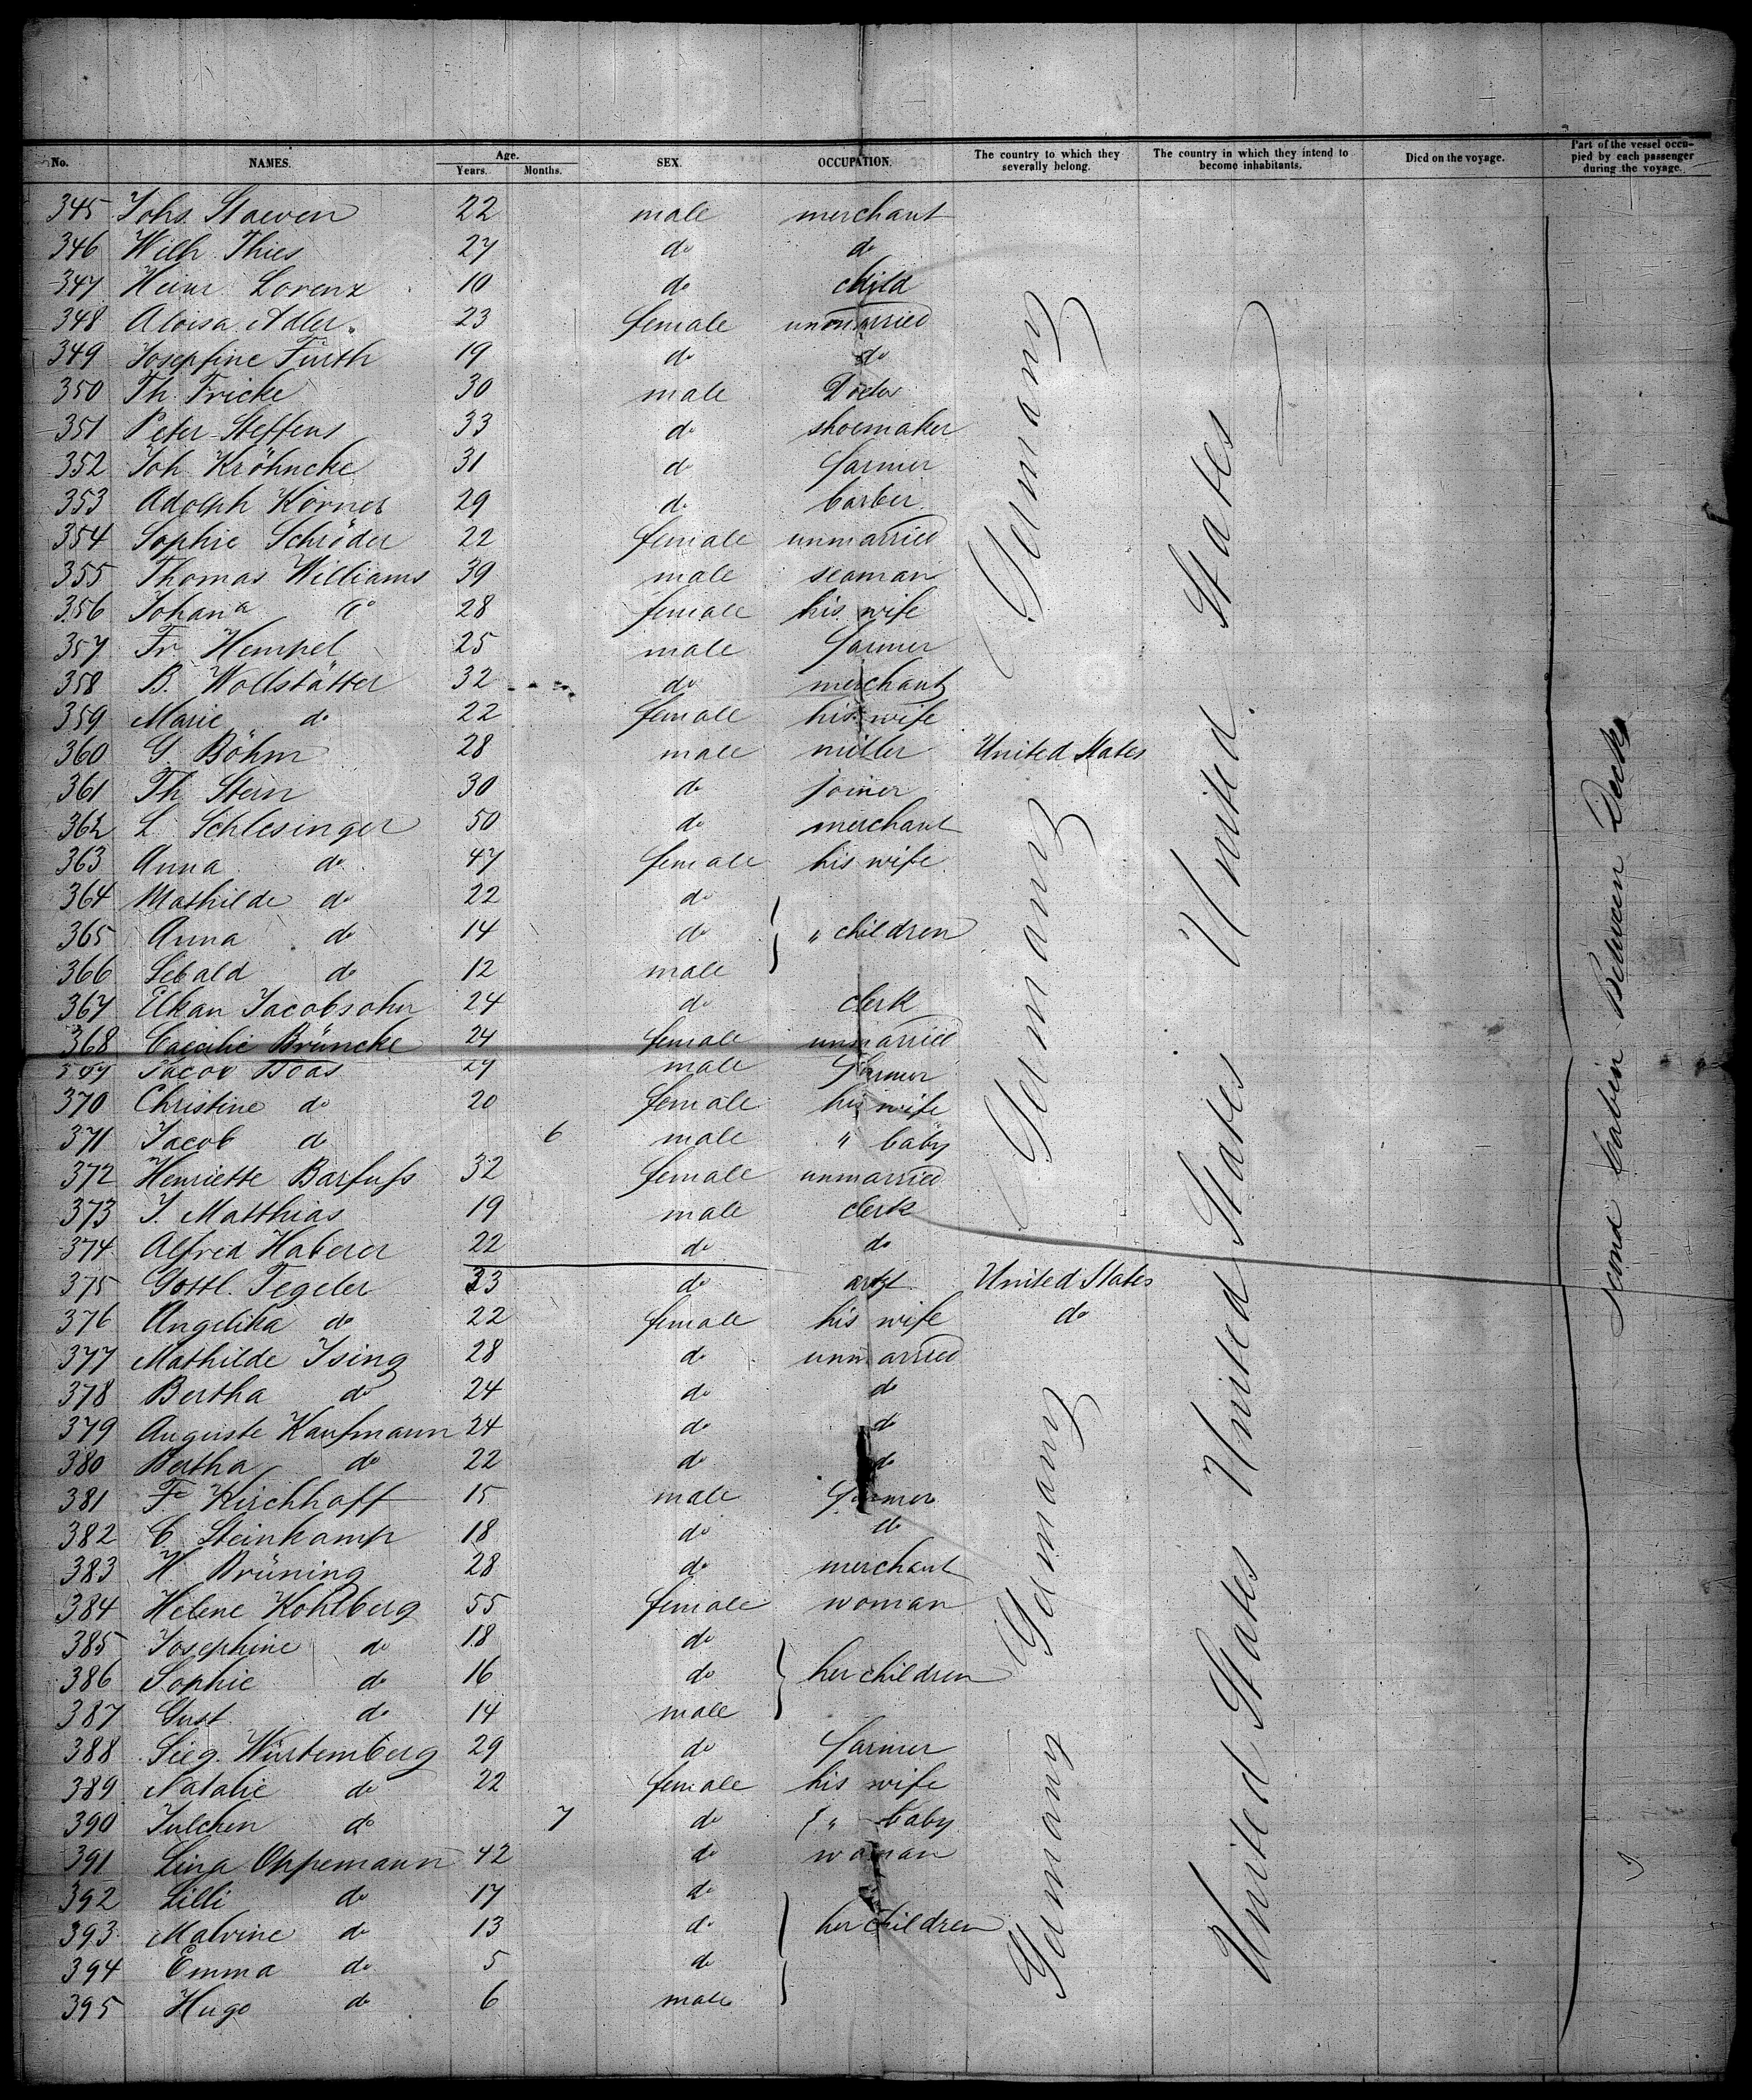 No. NAMES. Age. Years. Months. SEX. OCCUPATION. The country to which they severally belong. The country in which they intend to become inhabitants. Died on the voyage. Part of the vessel occupied by each passenger during the voyage.
345 Johs. Staeven 22 male merchant
346 Wilh. Thies 27 do do
347 Heinr. Lorenz 10 do child
348 Aloisa Adler 23 female unmarried
349 Josephine Fürth 19 do do
350 Th. Fricke 30 male Doctor
351 Peter Steffens 33 do shoemaker
352 Joh. Kröhncke 31 do farmer
353 Adolph Körner 29 do barber
354 Sophie Schröder 22 female unmarried
355 Thomas Williams 39 male seaman
356 Johana do 28 female his wife
357 Fr. Hempel 25 male farmer
358 B. Wollstätter 32 do merchant
359 Marie do 22 female his wife
360 G. Böhm 28 male miller United States
361 Th. Stern 30 do joiner
362 L. Schlesinger 50 do merchant
363 Anna do 47 female his wife
364 Mathilde do 22 do
365 Anna do 14 do " children
366 Sebald do 12 male
367 Elkan Jacobsohn 24 do clerk
368 Caecilie Brüncke 24 female unmarried
369 Jacob Boas 27 male farmer
370 Christine do 20 female his wife
371 Jacob do 6 male " baby
372 Henriette Barfuss 32 female unmarried
373 J. Matthias 19 male clerk
374 Alfred Haberer 22 do do
375 Gottl. Tegeler 33 do United States
376 Angelika do 22 female his wife do
377 Mathilde Ising 28 do unmarried
378 Bertha do 24 do do
379 Auguste Kaufmann 24 do do
380 Bertha do 22 do do
381 Fr. Kirchhoff 15 male farmer
382 C. Steinkamp 18 do do
383 H. Brüning 28 do merchant
384 Helene Kohlberg 55 female woman
385 Josephine do 18 do
386 Sophie do 16 do her children
387 Gust. do 14 male
388 Sieg. Würtemberg 29 do farmer
389 Natalie do 22 female his wife
390 Julchen do 7 do " baby
391 Lina Oppemann 42 do woman
392 Lilli do 17 do
393 Malvine do 13 do her children
394 Emma do 5 do
395 Hugo do 6 male
Germany Germany Germany Germany
United States United States United States United States
second Cabin Between Decks